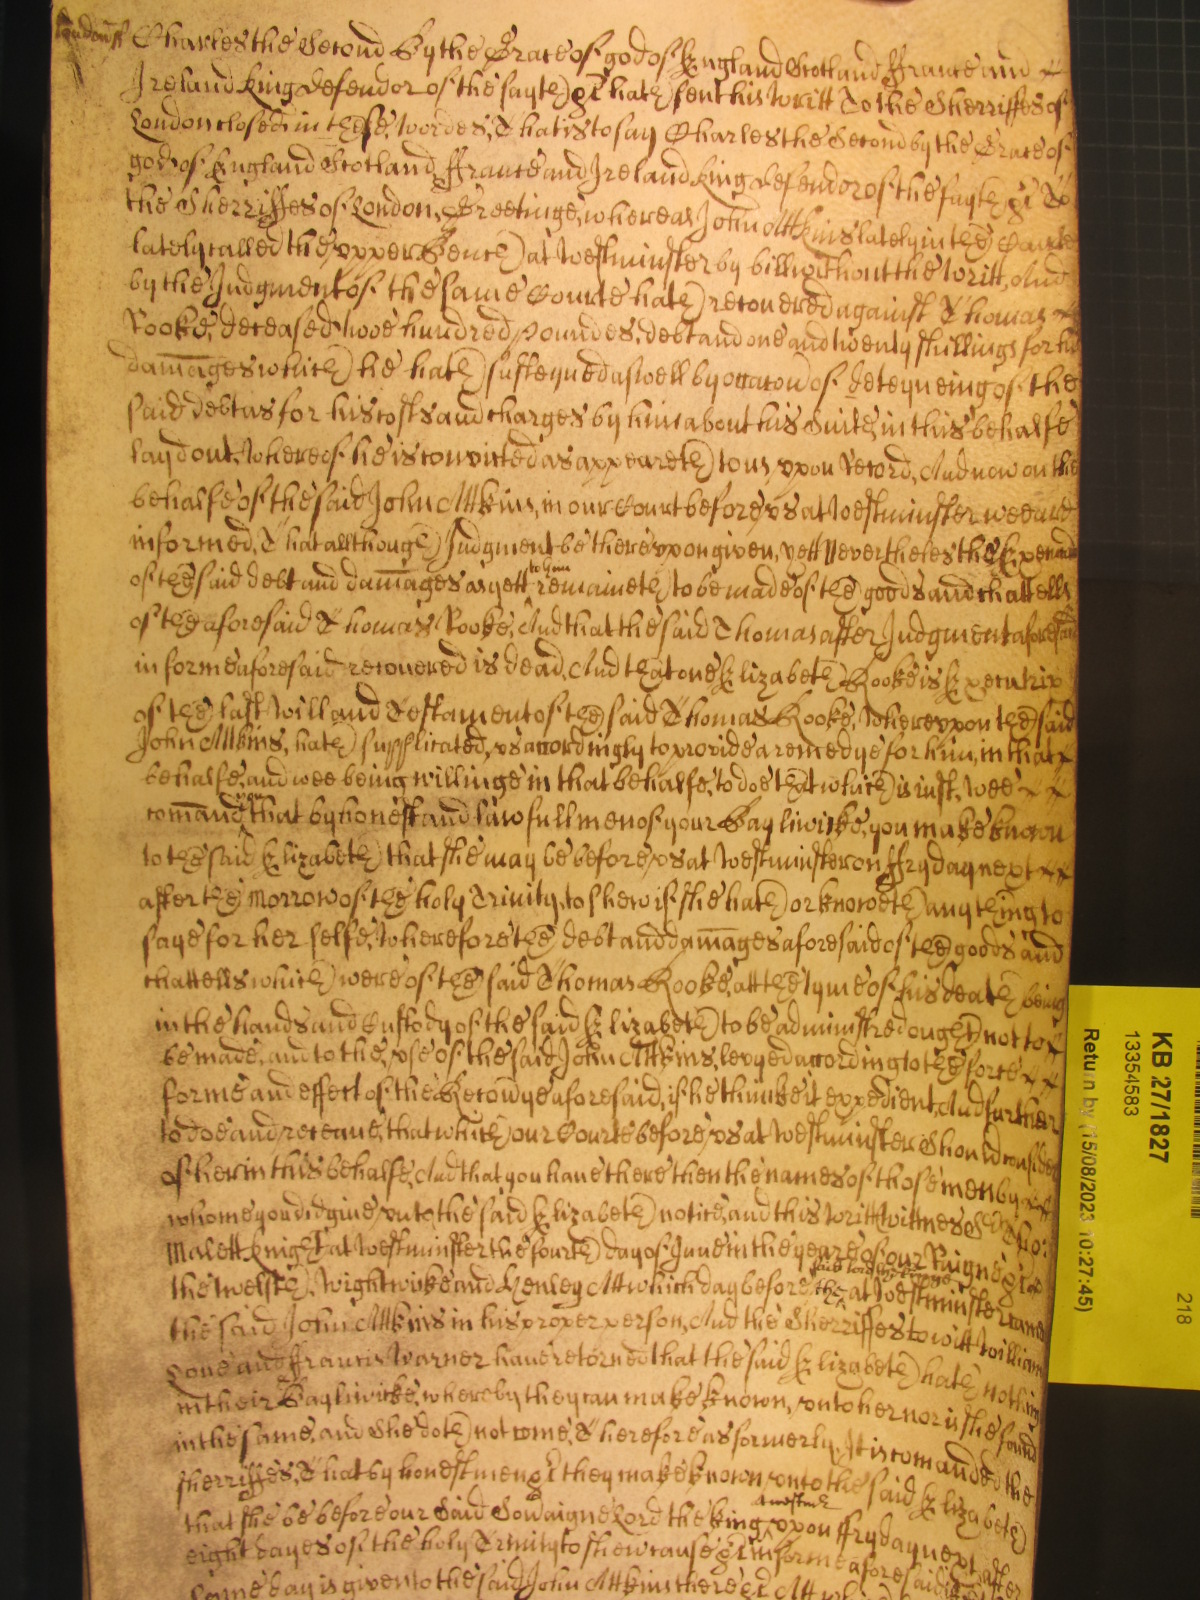 London ss Charles the Second By the Grace of god of England Scotland ffrance and
Ireland King defendor of the fayth &c hath sent his writt To the Sherriffes of
London closed in these wordes, That is to say Charles the Second by the Grace of
god of England Scotland ffrance and Ireland King defendor of the fayth &c To
the Sherriffes of London, Greetinge, whereas John Attkins lately in the Courte
lately called the vpper Bench at Westminster by bill without the writt, And
by the Judgment of the same Courte hath recouered against Thomas
Rooke, deceased twoe hundred poundes, debt and one and twenty shillings for his
damages which he hath susteyned aswell by occacon of deteyneing of the
said debt as for his costs and charges by him about his Suite, in this behalfe
layd out, Whereof he is convicted as appeareth to us, vpon Record, And now on the
behalfe of the said John Attkins, in our Court before, vs at Westminster wee are
informed, That allthough Judgment be there vpon given, yett Nevertheles the Execucon
of the said debt and damages as yett to him remaineth to be made of the goods and chattells
of the aforesaid Thomas Rooke, And that the said Thomas after Judgment aforesaid
in forme aforesaid recouered is dead, And that one Elizabeth Rooke is Executrix
of the last Will and Testament of the said Thomas Rooke, Wherevpon the said
John Attkins, hath supplicated, vs accordingly to provide a remedye for him, in that
behalfe, and wee being willinge in that behalfe, to doe that which is iust, Wee
comand you that by honest and lawfull men of your Bayliwicke, you make known
to the said Elizabeth that she may be before, vs at Westminster on ffryday next
after the Morrow of the holy Trinity, to shew if she hath or knoweth any thing to
saye for her selfe, Wherefore the debt and damages aforesaid of the goods and
chattells which were of the said Thomas Rooke, att the tyme of his death being
in the hands and Custody of the said Elizabeth to be administred ought not to
be made, and to the, vse of the said John Attkins, levyed according to the force
forme and effect of the Recouye aforesaid, if he thinke it expedient, And further
to doe and receaue, that which our Courte before, vs at Westminster Should consider
of her in this behalfe, And that you haue there then the names of those men by
whome you did giue, vnto the said Elizabeth notice, and this Writt wittnes Sr Tho:
Malett knight at Westminster the fourth day of June in the yeare of our Raigne &c
the twelfth, Wightwicke and Henley Att which day before the said Lord the King at Westminster came
the said John Attkins in his proper person, And the Sherriffes to witt William
Loue and ffrancis Warner haue retorned that the said Elizabeth hath nothing
in their Bayliwicke, whereby they can make known, vnto her nor is she found
in the same, and She doth not come, Therefore as formerly, It is comanded the
sherriffes, That by honest men &c they make known, vnto the said Elizabeth
that she be before our Said Soueraigne Lord the King at westmr, vpon ffryday next after
eight dayes of the holy Trinity to shew cause &c in forme aforesaid
same day is given to the said John Attkins there &c Att
KB 27/1827
13354583
218
Return by (15/08/2023 10:27:45)